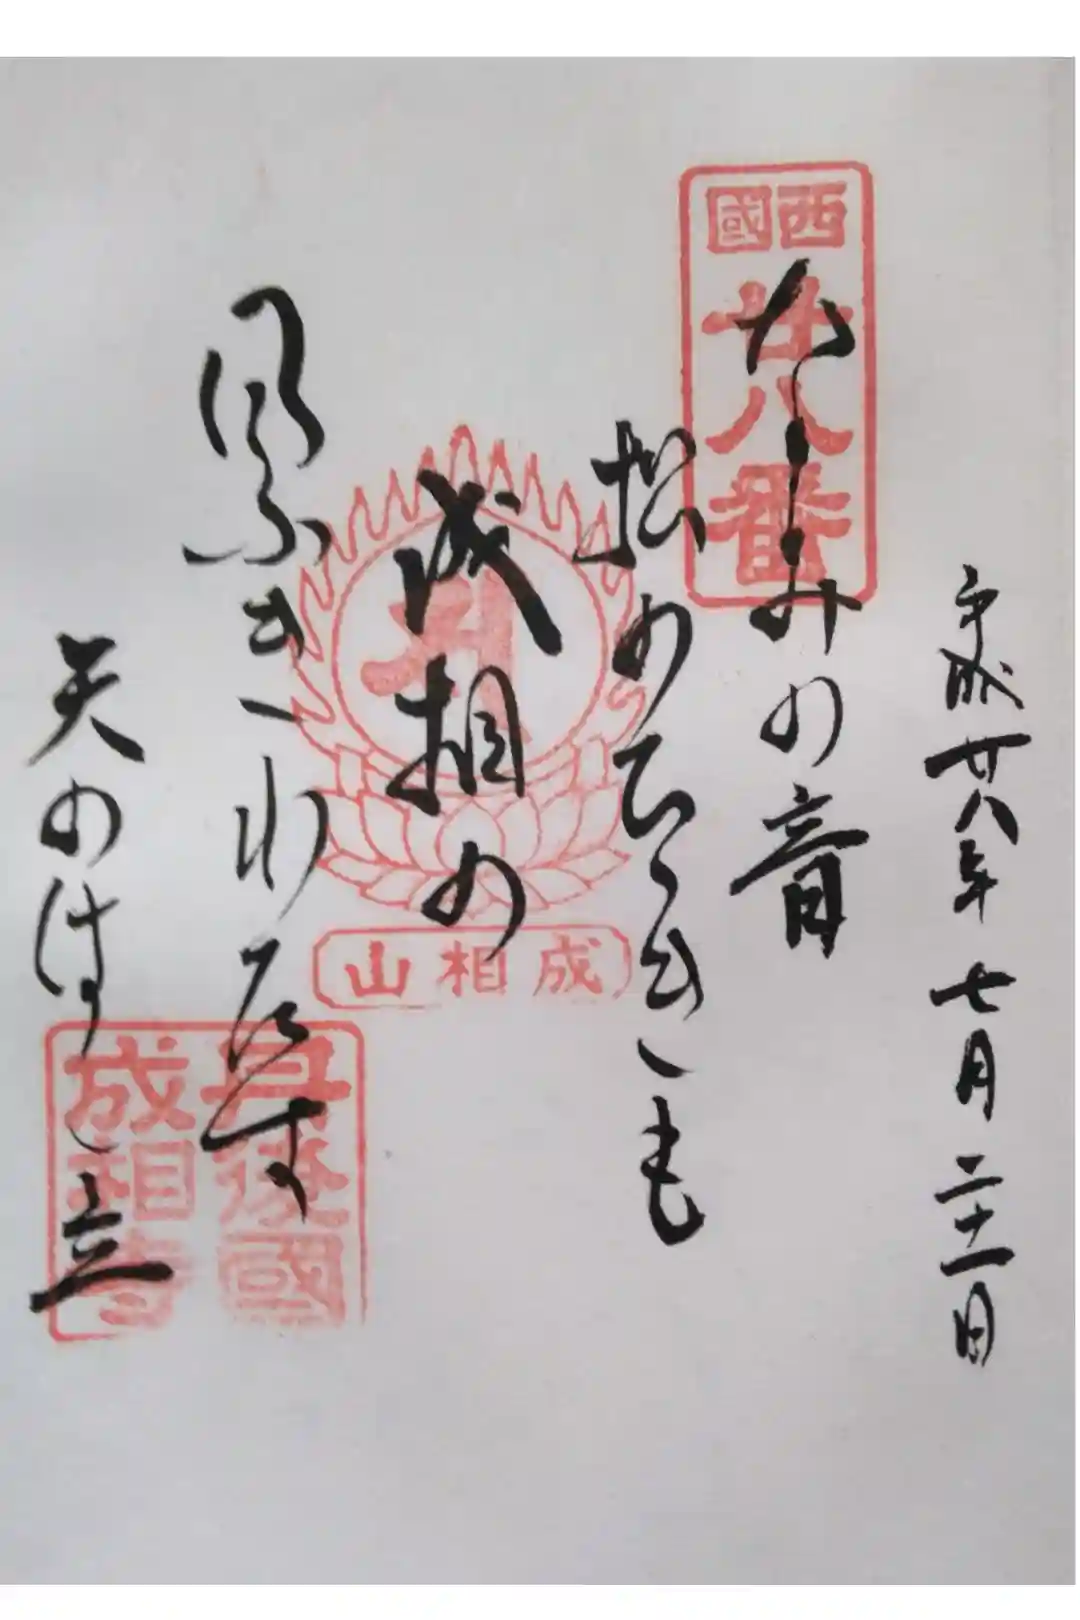 平成廿八年七月二十一日
西國
廿八番
なみの音
松のひゝきも
成相の
風ふきわたす
天のはし立
成相山
丹後國
成相寺